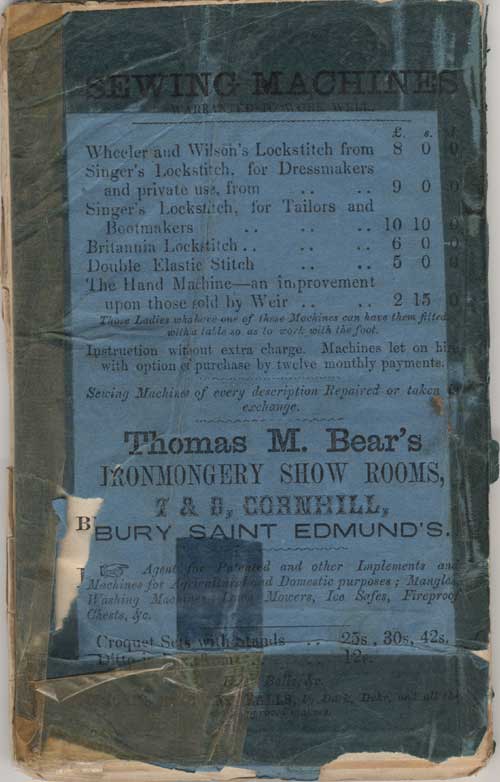 SEWING MACHINES
WARRANTED TO WORK WELL.
£. s. d.
Wheeler and Wilson's Lockstitch from 8 0 0
Singer's Lockstitch, for Dressmakers
and private use, from .. .. 9 0 0
Singer's Lockstitch, for Tailors and
Bootmakers .. .. .. 10 10 0
Britannia Lockstitch .. .. 6 0 0
Double Elastic Stitch .. .. 5 0 0
The Hand Machine—an improvement
upon those sold by Weir .. .. 2 15 0
Those Ladies who have one of these Machines can have them fitted
with a table so as to work with the foot.
Instruction without extra charge. Machines let on hire
with option of purchase by twelve monthly payments.
Sewing Machines of every description Repaired or taken
exchange.
Thomas M. Bear's
IRONMONGERY SHOW ROOMS,
7 & 8, CORNHILL,
B
BURY SAINT EDMUND'S.
☞ Agent for Patented and other Implements and
Machines for Agricultural and Domestic purposes; Mangles
Washing Machines, Lawn Mowers, Ice Safes, Fireproof
Chests, &c.
Croquet Sets with Stands .. 25s, 30s, 42s,
Ditto .. 12s.
Balls, &c.
BALLS, Dark, Duke, and all the